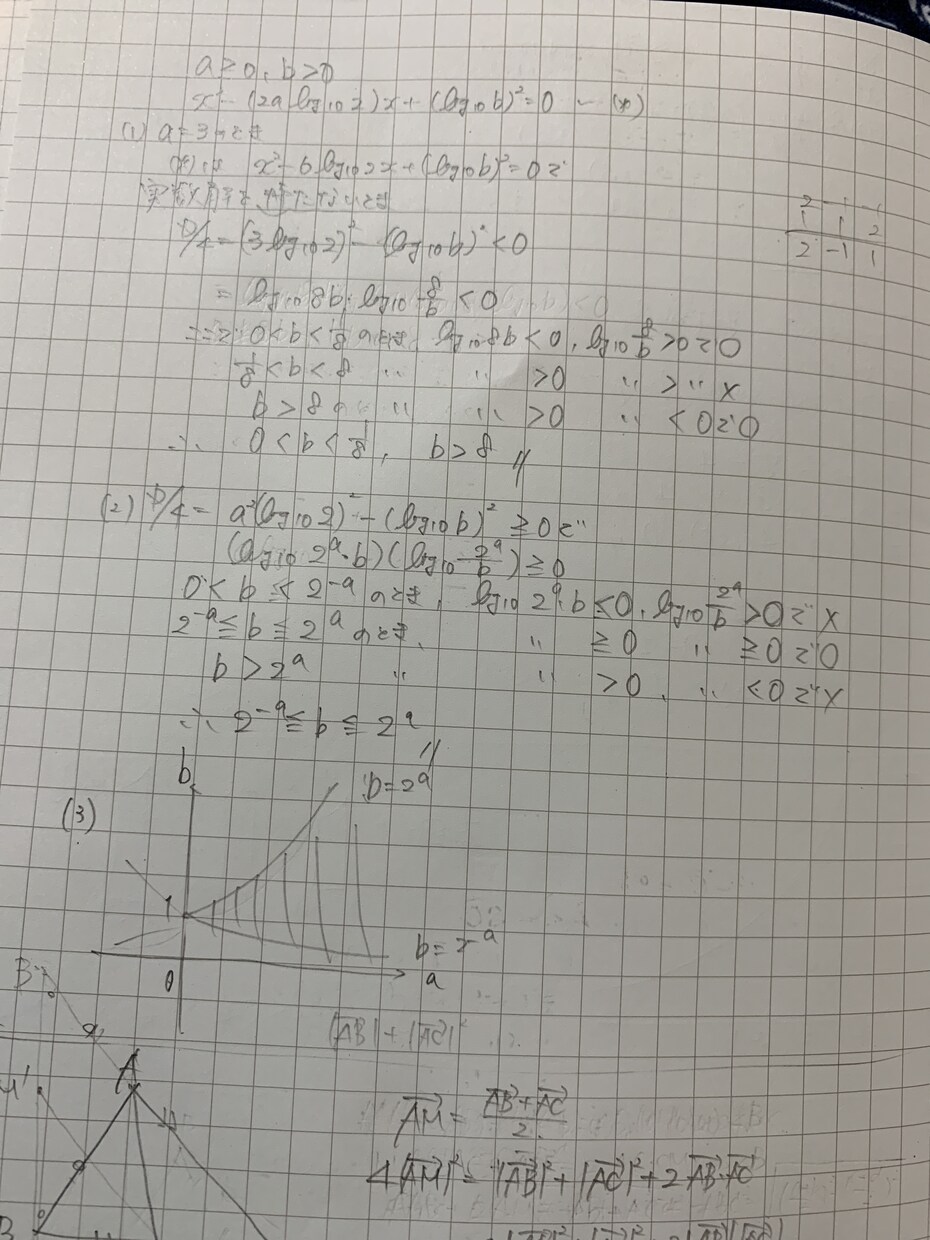 a≧0, b>0
x²-(2a log₁₀2)x+(log₁₀b)²=0 ―(*)
(1) a=3のとき
(*)は x²-6log₁₀2x+(log₁₀b)²=0で
実数解を持たないとき
D/4=(3log₁₀2)²-(log₁₀b)²<0
=log₁₀8b・log₁₀8/b<0
ここで 0<b<1/8のとき log₁₀8b<0, log₁₀8/b>0で○
1/8<b<8 〃 〃 >0 〃 >〃×
b>8の 〃 〃 >0 〃 <0で○
∴ 0<b<1/8, b>8 //
2 -1 -1
1 1 2
2 -1 1
(2) D/4=a²(log₁₀2)²-(log₁₀b)²≧0で
(log₁₀2ᵃ・b)(log₁₀2ᵃ/b)≧0
0<b≦2⁻ᵃのとき, log₁₀2ᵃ・b≦0, log₁₀2ᵃ/b>0で×
2⁻ᵃ≦b≦2ᵃのとき, 〃 ≧0 〃 ≧0で○
b>2ᵃ 〃 〃 >0, 〃 <0で×
∴ 2⁻ᵃ≦b≦2ᵃ //
(3)
b
b=2ᵃ
1
b=2⁻ᵃ
0
a
B
|AB|+|AC|
A
M'
AM=(AB+AC)/2
4|AM|²=|AB|²+|AC|²+2AB・AC
B